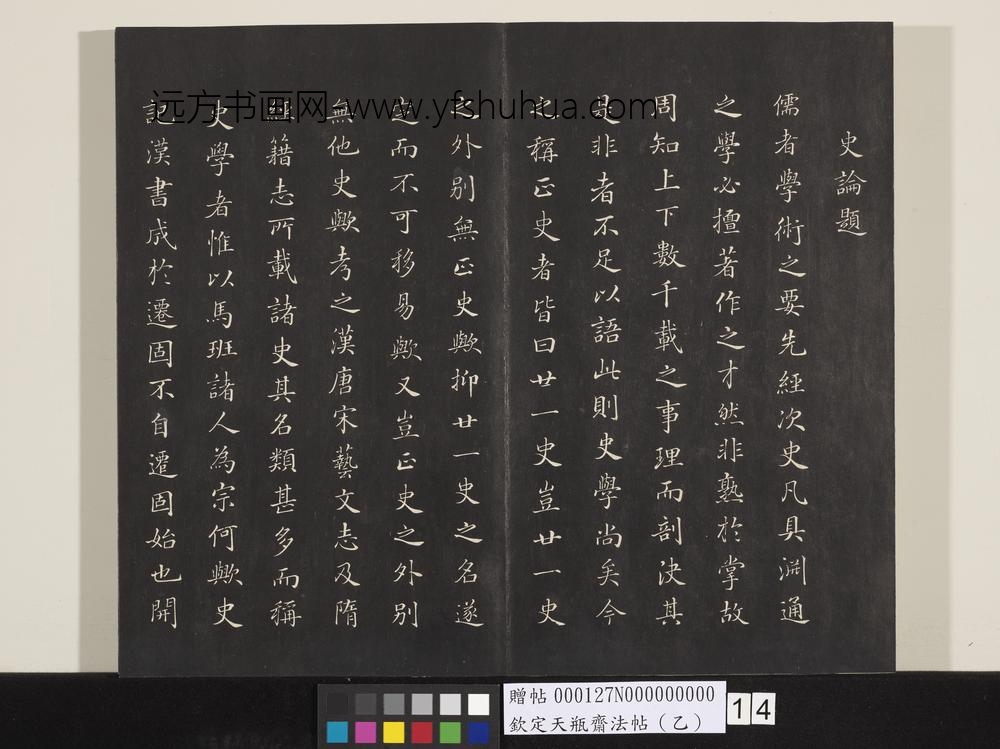 史論題
儒者學術之要先經次史凡具淵通
之學必擅著作之才然非熟於掌故
周知上下數千載之事理而剖決其
是非者不足以語此則史學尚矣今
之稱正史者皆曰廿一史豈廿一史
之外別無正史歟抑廿一史之名遂
定而不可移易歟又豈正史之外別
無他史歟考之漢唐宋藝文志及隋
經籍志所載諸史其名類甚多而稱
史學者惟以馬班諸人為宗何歟史
記漢書成於遷固不自遷固始也開
远方书画网-www.yfshuhua.com
贈帖 000127N000000000
欽定天瓶齋法帖(乙)
14